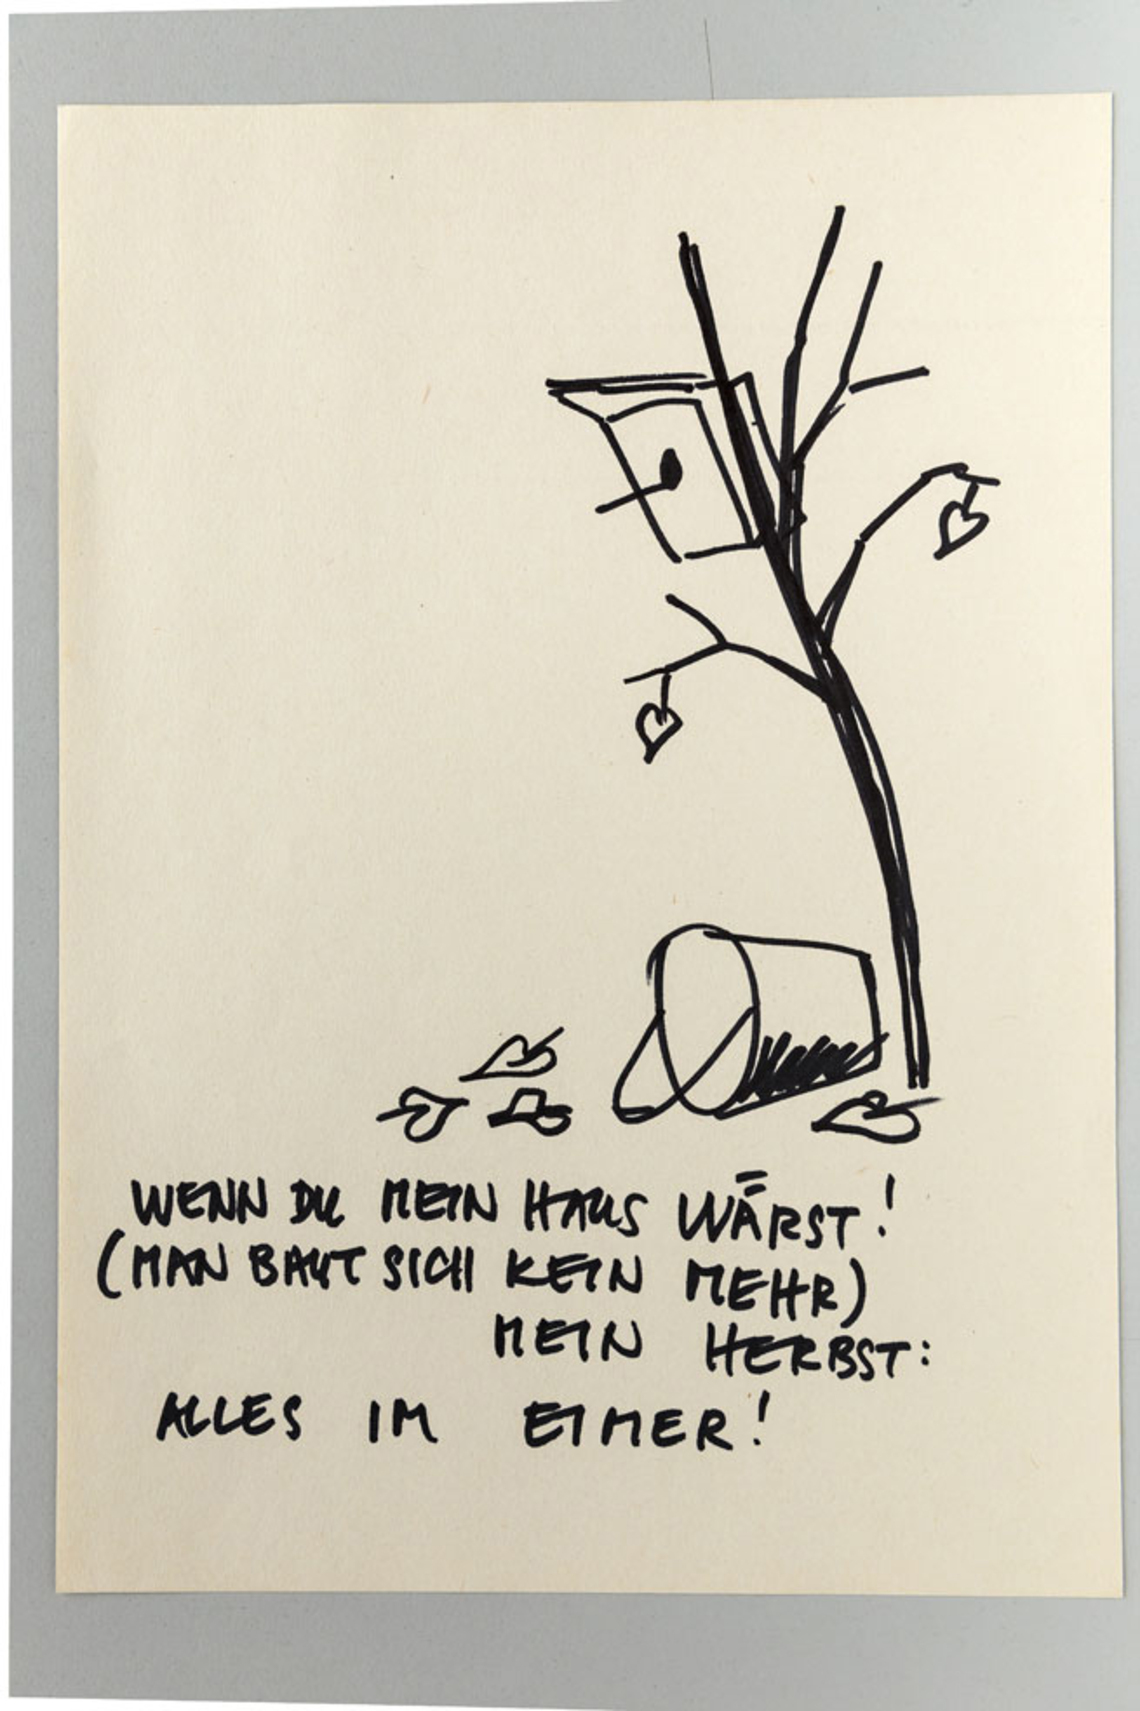 WENN DU MEIN HAUS WÄRST!
(MAN BAUT SICH KEIN MEHR)
MEIN HERBST:
ALLES IM EIMER!